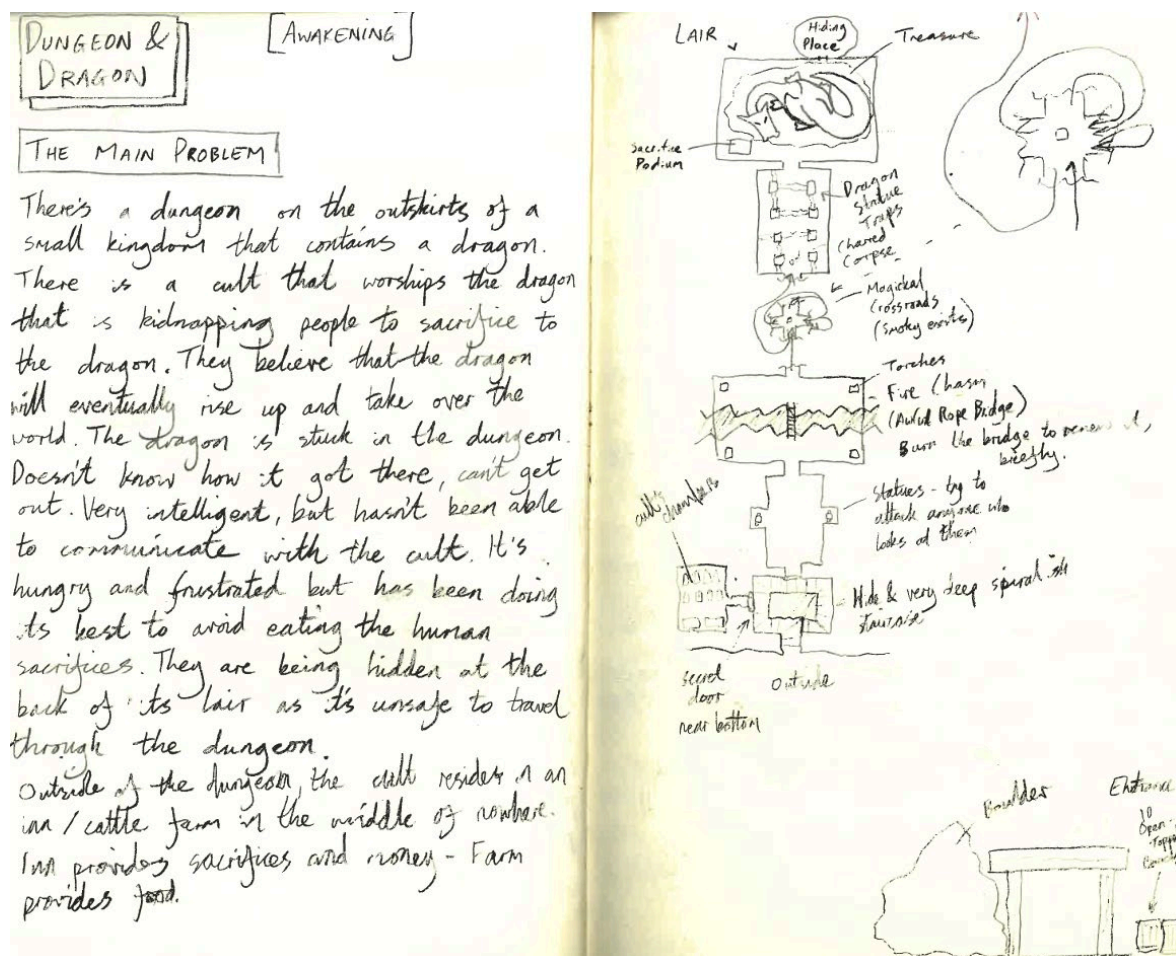 DUNGEON &
DRAGON
[AWAKENING]
THE MAIN PROBLEM
There's a dungeon on the outskirts of a
small kingdom that contains a dragon.
There is a cult that worships the dragon
that is kidnapping people to sacrifice to
the dragon. They believe that the dragon
will eventually rise up and take over the
world. The dragon is stuck in the dungeon.
Doesn't know how it got there, can't get
out. Very intelligent, but hasn't been able
to communicate with the cult. It's
hungry and frustrated but has been doing
its best to avoid eating the human
sacrifices. They are being hidden at the
back of its lair as it's unsafe to travel
through the dungeon.
Outside of the dungeon, the cult resides in an
inn / cattle farm in the middle of nowhere.
Inn provides sacrifices and money - Farm
provides food.
LAIR
Hiding
Place
Treasure
Sacrifice
Podium
Dragon
Statue
Traps
Charred
Corpse
Magickal
Crossroads
(smoky exits)
Torches
Fire Chasm
(Awful Rope Bridge)
Burn the bridge to renew it,
briefly.
cult's chambers
Statues - try to
attack anyone who
looks at them
& very deep spiral ish
staircase
secret
door
near bottom
Outside
Boulder
Entrance
10
Open-